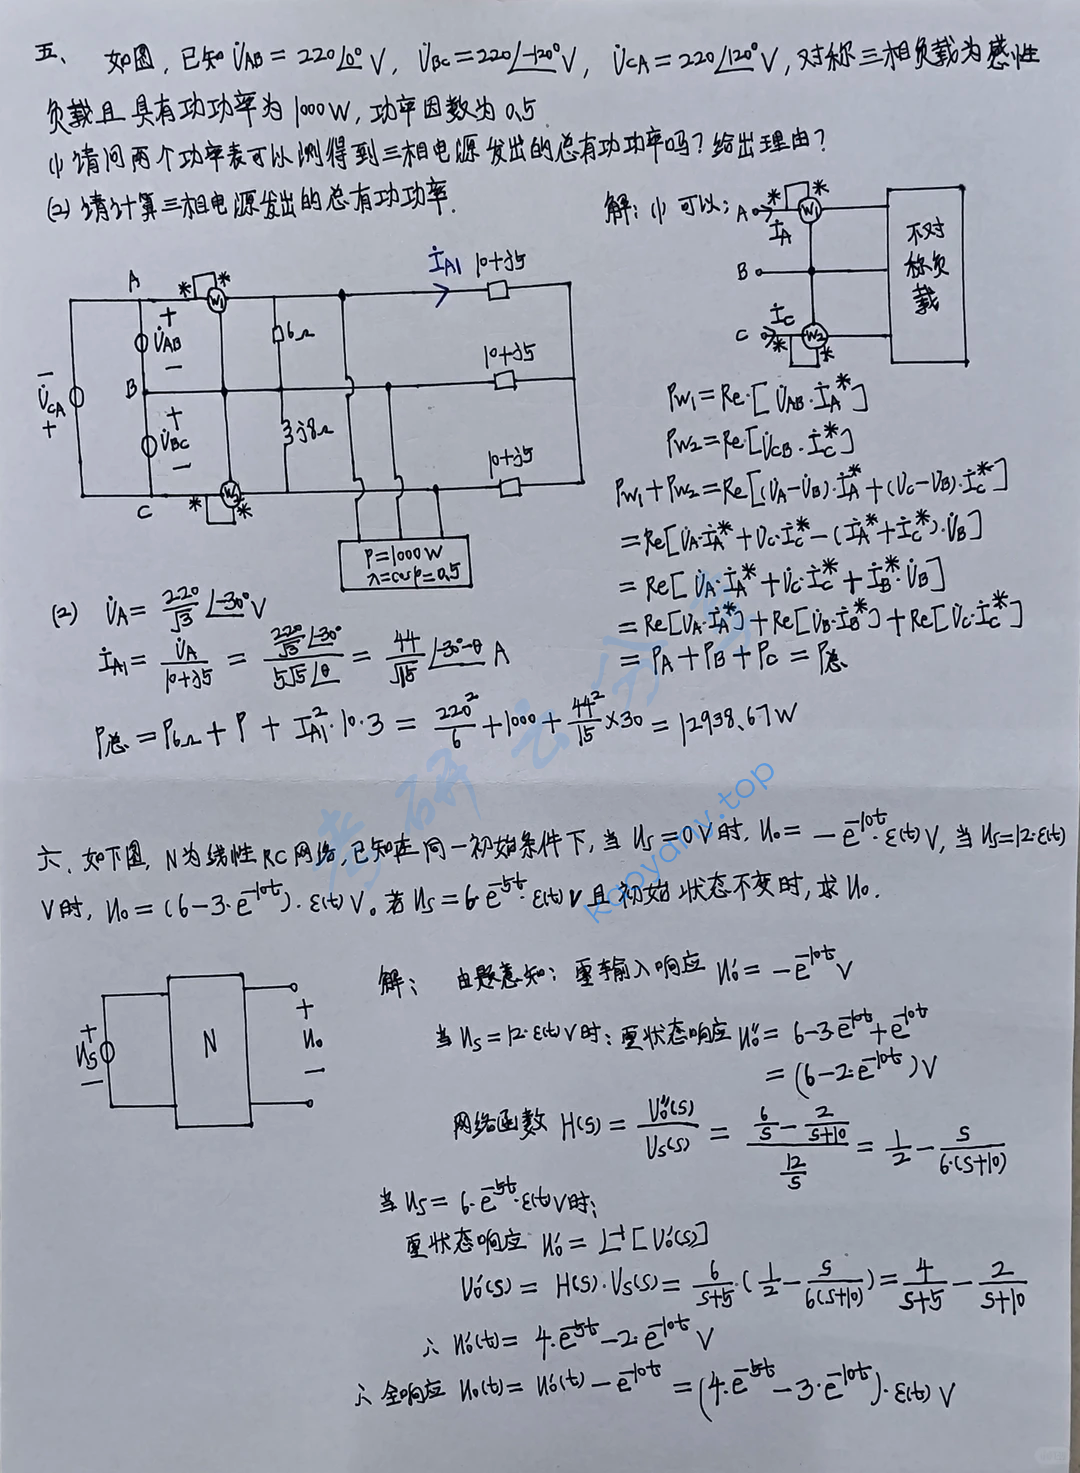 五、 如图，已知 U̇AB = 220∠0° V， U̇BC = 220∠-120° V， U̇CA = 220∠120° V，对称三相负载为感性
负载且具有功功率为1000W，功率因数为0.5.
(1) 请问两个功率表可以测得到三相电源发出的总有功功率吗？给出理由？
(2) 请计算三相电源发出的总有功功率.
解：(1) 可以；
A
* *
W1
İA
B
C
İC
W2
* *
不对
称负
载
A
* *
W1
İA1
10+j5
+
U̇AB
−
6Ω
−
U̇CA
+
B
10+j5
+
U̇BC
−
j8Ω
10+j5
C
W2
* *
P=1000W
λ=cosφ=0.5
PW1 = Re·[U̇AB·İA*]
PW2 = Re·[U̇CB·İC*]
PW1+PW2 = Re[(U̇A−U̇B)·İA* + (U̇C−U̇B)·İC*]
= Re[U̇A·İA* + U̇C·İC* − (İA*+İC*)·U̇B]
= Re[U̇A·İA* + U̇C·İC* + İB*·U̇B]
= Re[U̇A·İA*] + Re[U̇B·İB*] + Re[U̇C·İC*]
= PA + PB + PC = P总
(2) U̇A = 220/√3 ∠-30° V
İA1 = U̇A/(10+j5) = (220/√3 ∠-30°)/(5√5∠θ) = 44/√15 ∠-30°-θ A
P总 = P6Ω + P + IA1²·10·3 = 220²/6 + 1000 + 44²/15 × 30 = 12938.67W
考研云分享
kaoyany.top
六、如下图，N为线性RC网络，已知在同一初始条件下，当 Us = 0V时，Uo = −e^-10t·ε(t) V，当 Us=12·ε(t)
V时，Uo = (6−3·e^-10t)·ε(t) V。若 Us = 6·e^-5t·ε(t) V 且初始状态不变时，求 Uo.
+
Us
−
N
+
Uo
−
解： 由题意知：零输入响应 Uo' = −e^-10t V
当 Us = 12·ε(t) V 时；零状态响应 Uo'' = 6−3e^-10t + e^-10t
= (6−2·e^-10t) V
网络函数 H(s) = Uo''(s)/Us(s) = (6/s − 2/(s+10))/(12/s) = 1/2 − s/(6·(s+10))
当 Us = 6·e^-5t·ε(t) V 时；
零状态响应 Uo' = L⁻¹[Uo'(s)]
Uo'(s) = H(s)·Us(s) = 6/(s+5)·(1/2 − s/(6(s+10))) = 4/(s+5) − 2/(s+10)
∴ Uo'(t) = 4·e^-5t − 2·e^-10t V
∴ 全响应 Uo(t) = Uo'(t) − e^-10t = (4·e^-5t − 3·e^-10t)·ε(t) V